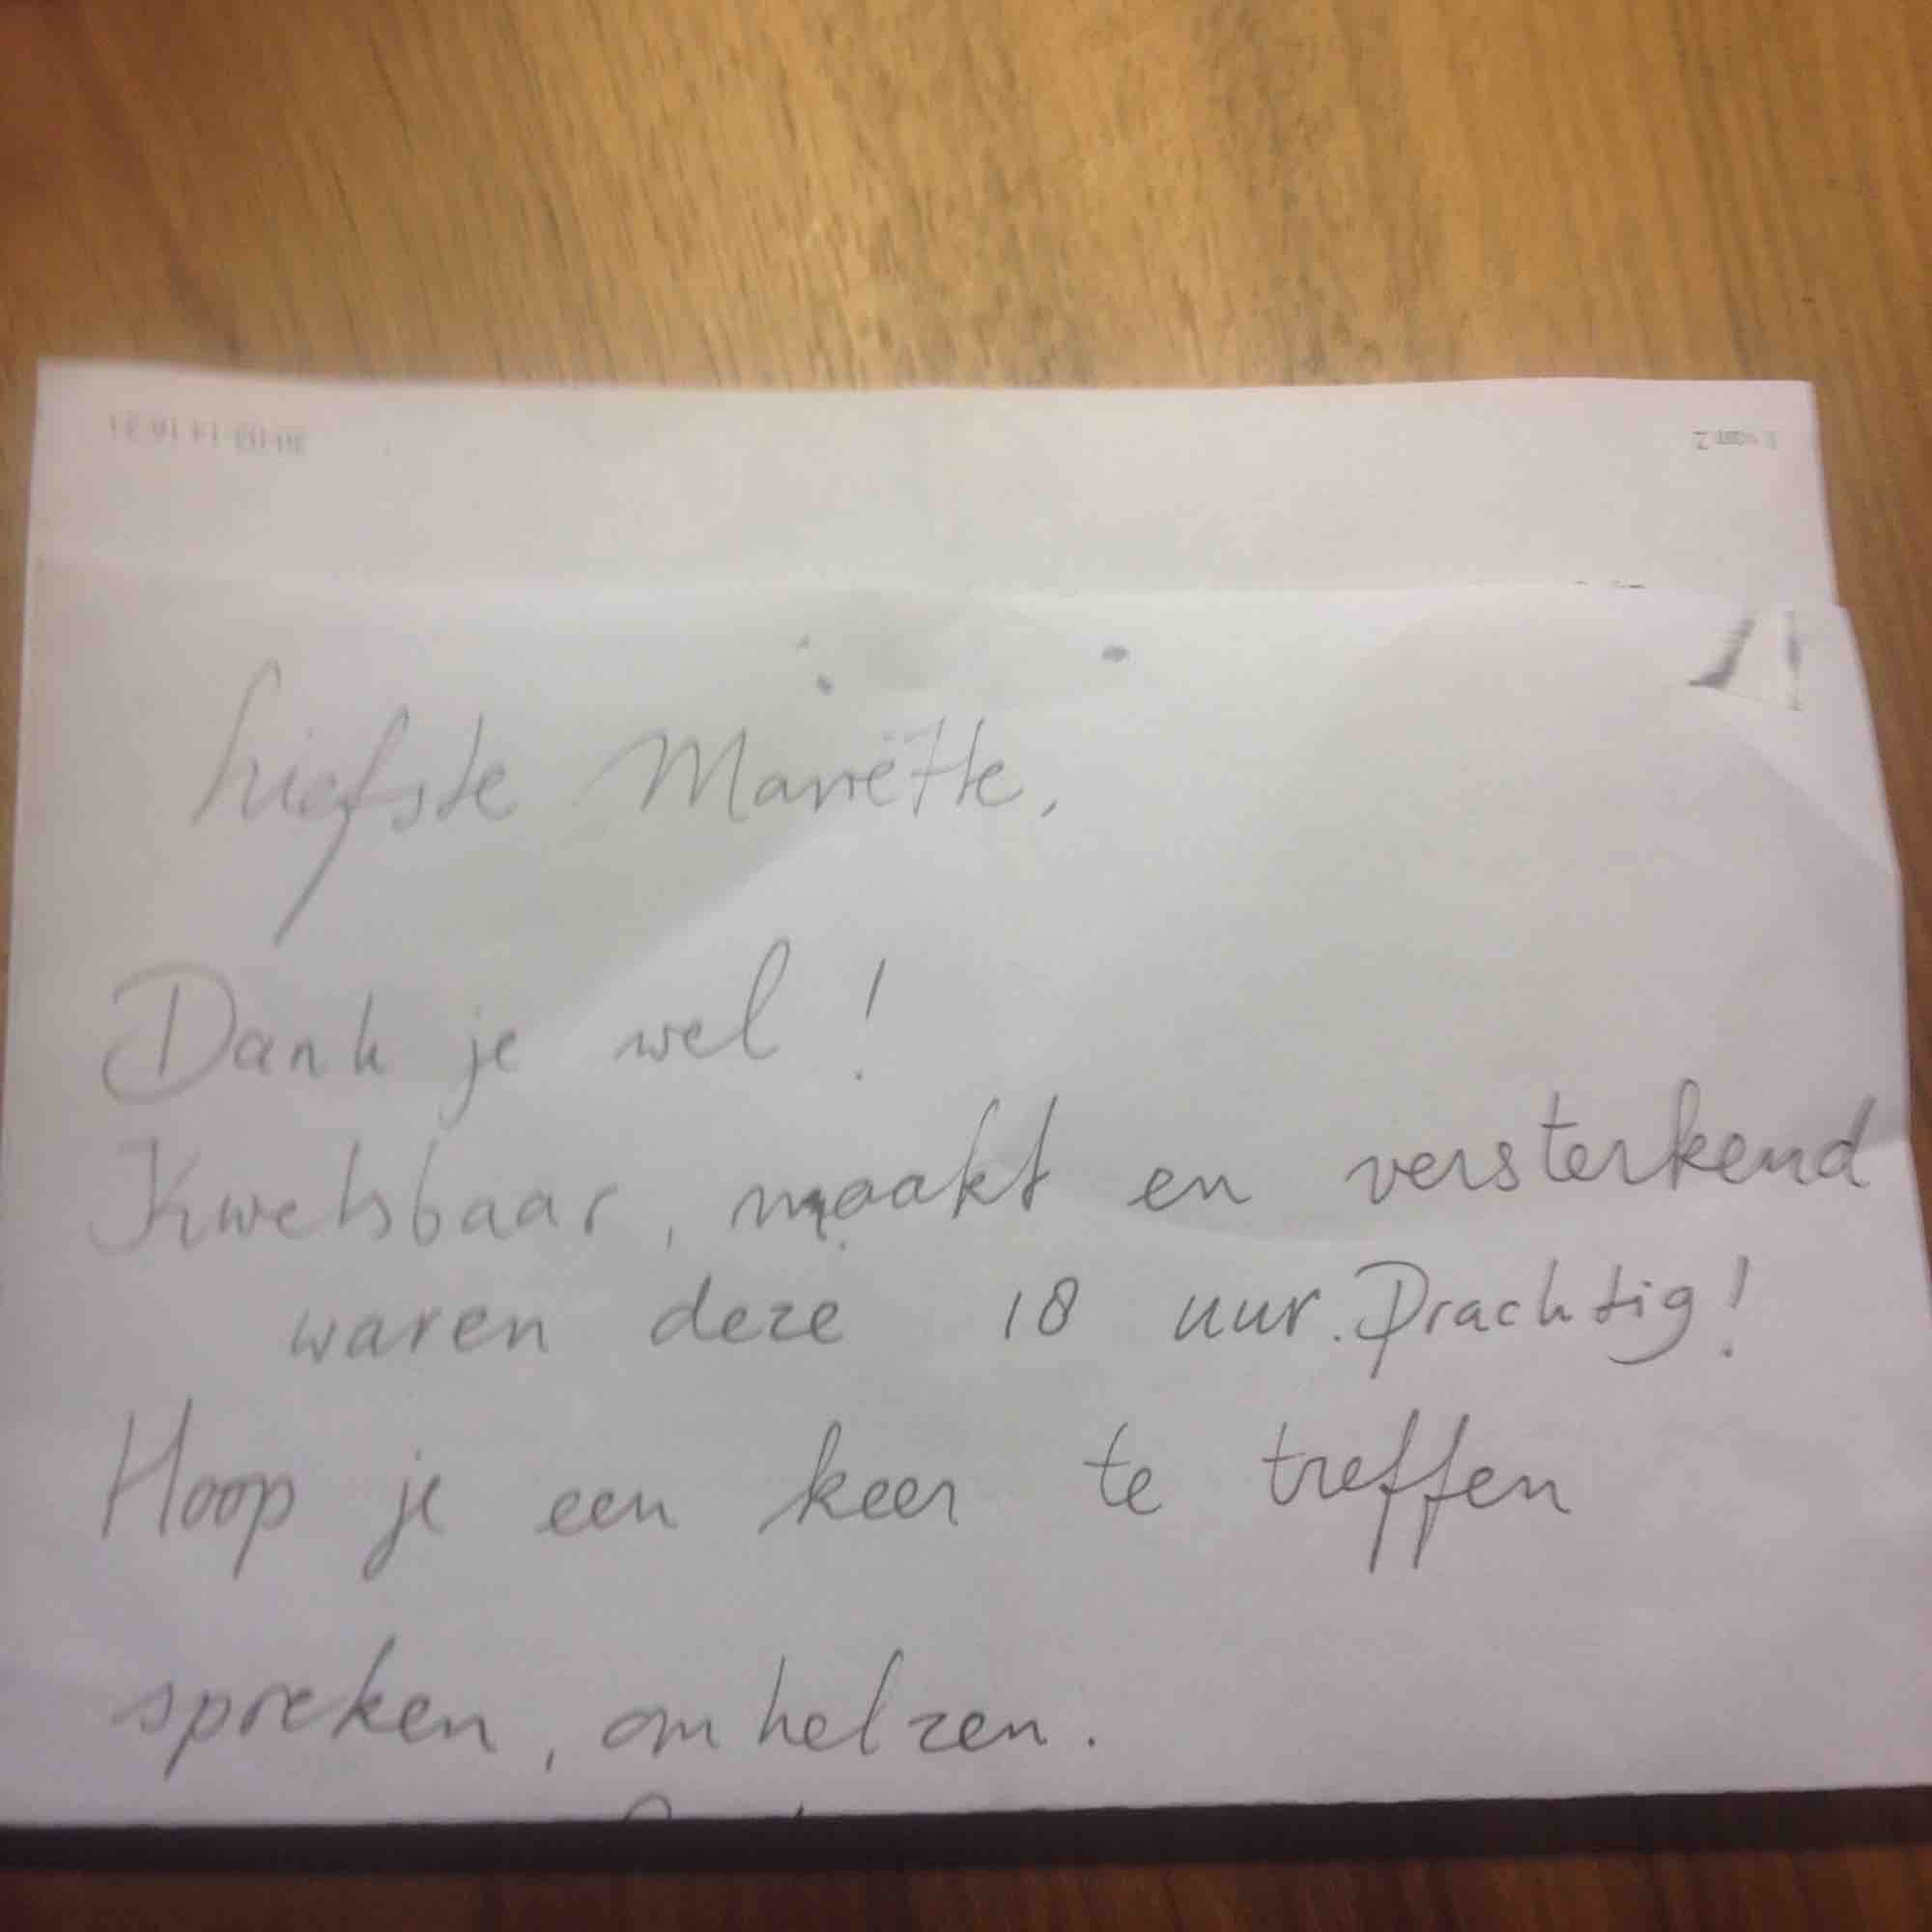 liefste Mariëtte,
Dank je wel!
Kwetsbaar, naakt en versterkend
waren deze 18 uur. Prachtig!
Hoop je een keer te treffen
spreken, omhelzen.